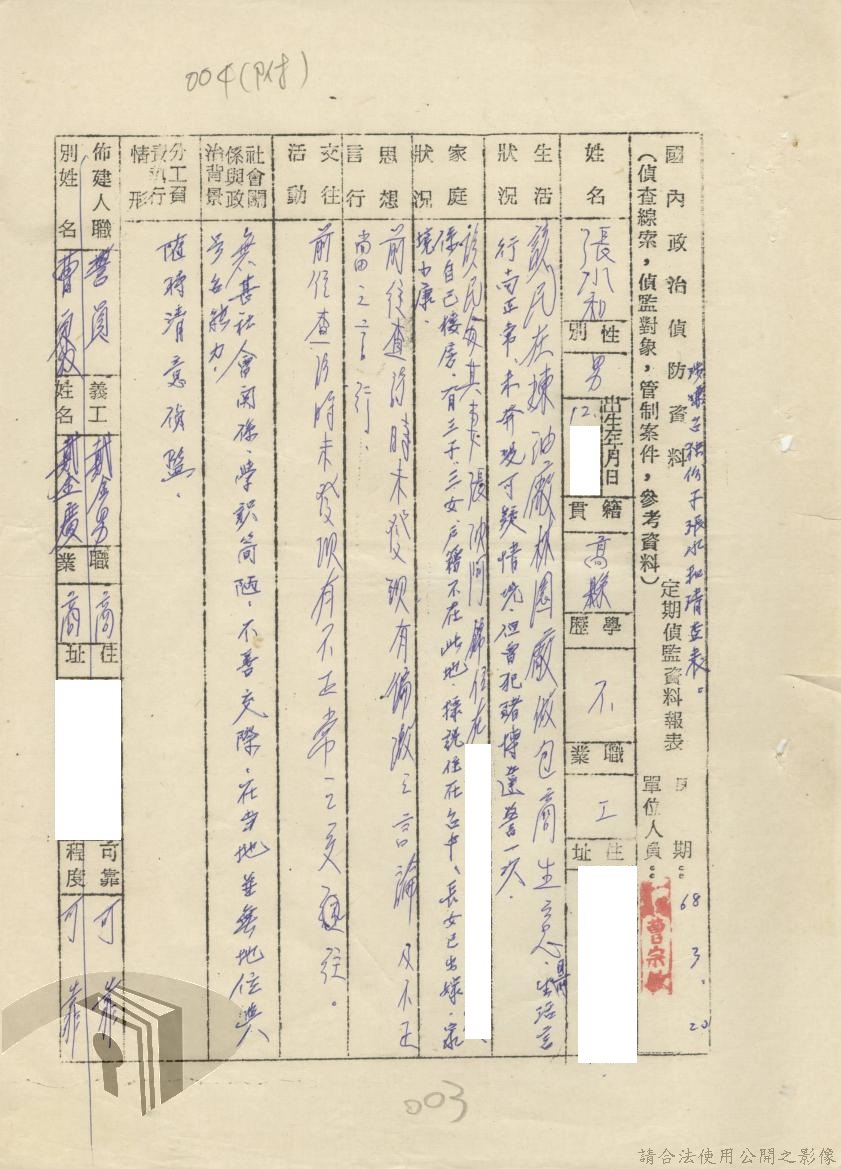 004(附)
國內政治偵防資料
定期偵監資料報表
日期：68 3. 20
(偵查線索，偵監對象，管制案件，參考資料)
單位人員：曹宗
姓名 張水和 性別 男 出生年月日 12 籍貫 高縣 學歷 不 職業 工 住址
生活狀況
該民在煉油廠林園廠做包商生意、生活言
行尚正常，未發現可疑情況，但曾犯賭博違警一次.
家庭狀況
係自己樓房，有三子、三女，戶籍不在此地，據說住在台中、長女已出嫁，家
境小康.
思想言行
前往查訪時未發現有偏激之言論及不正
當之言行.
交往活動
前往查訪時未發現有不正常之交往.
社會關係與政治背景
無甚社會關係，學識簡陋，不善交際，在當地並無地位與
號召能力.
分工負責執行情形
隨時清意偵監.
佈建人職別 警員 義工 職業 商 住址 可靠程度 可靠
姓名 曹 姓名 業 商 可靠
003
請合法使用公開之影像